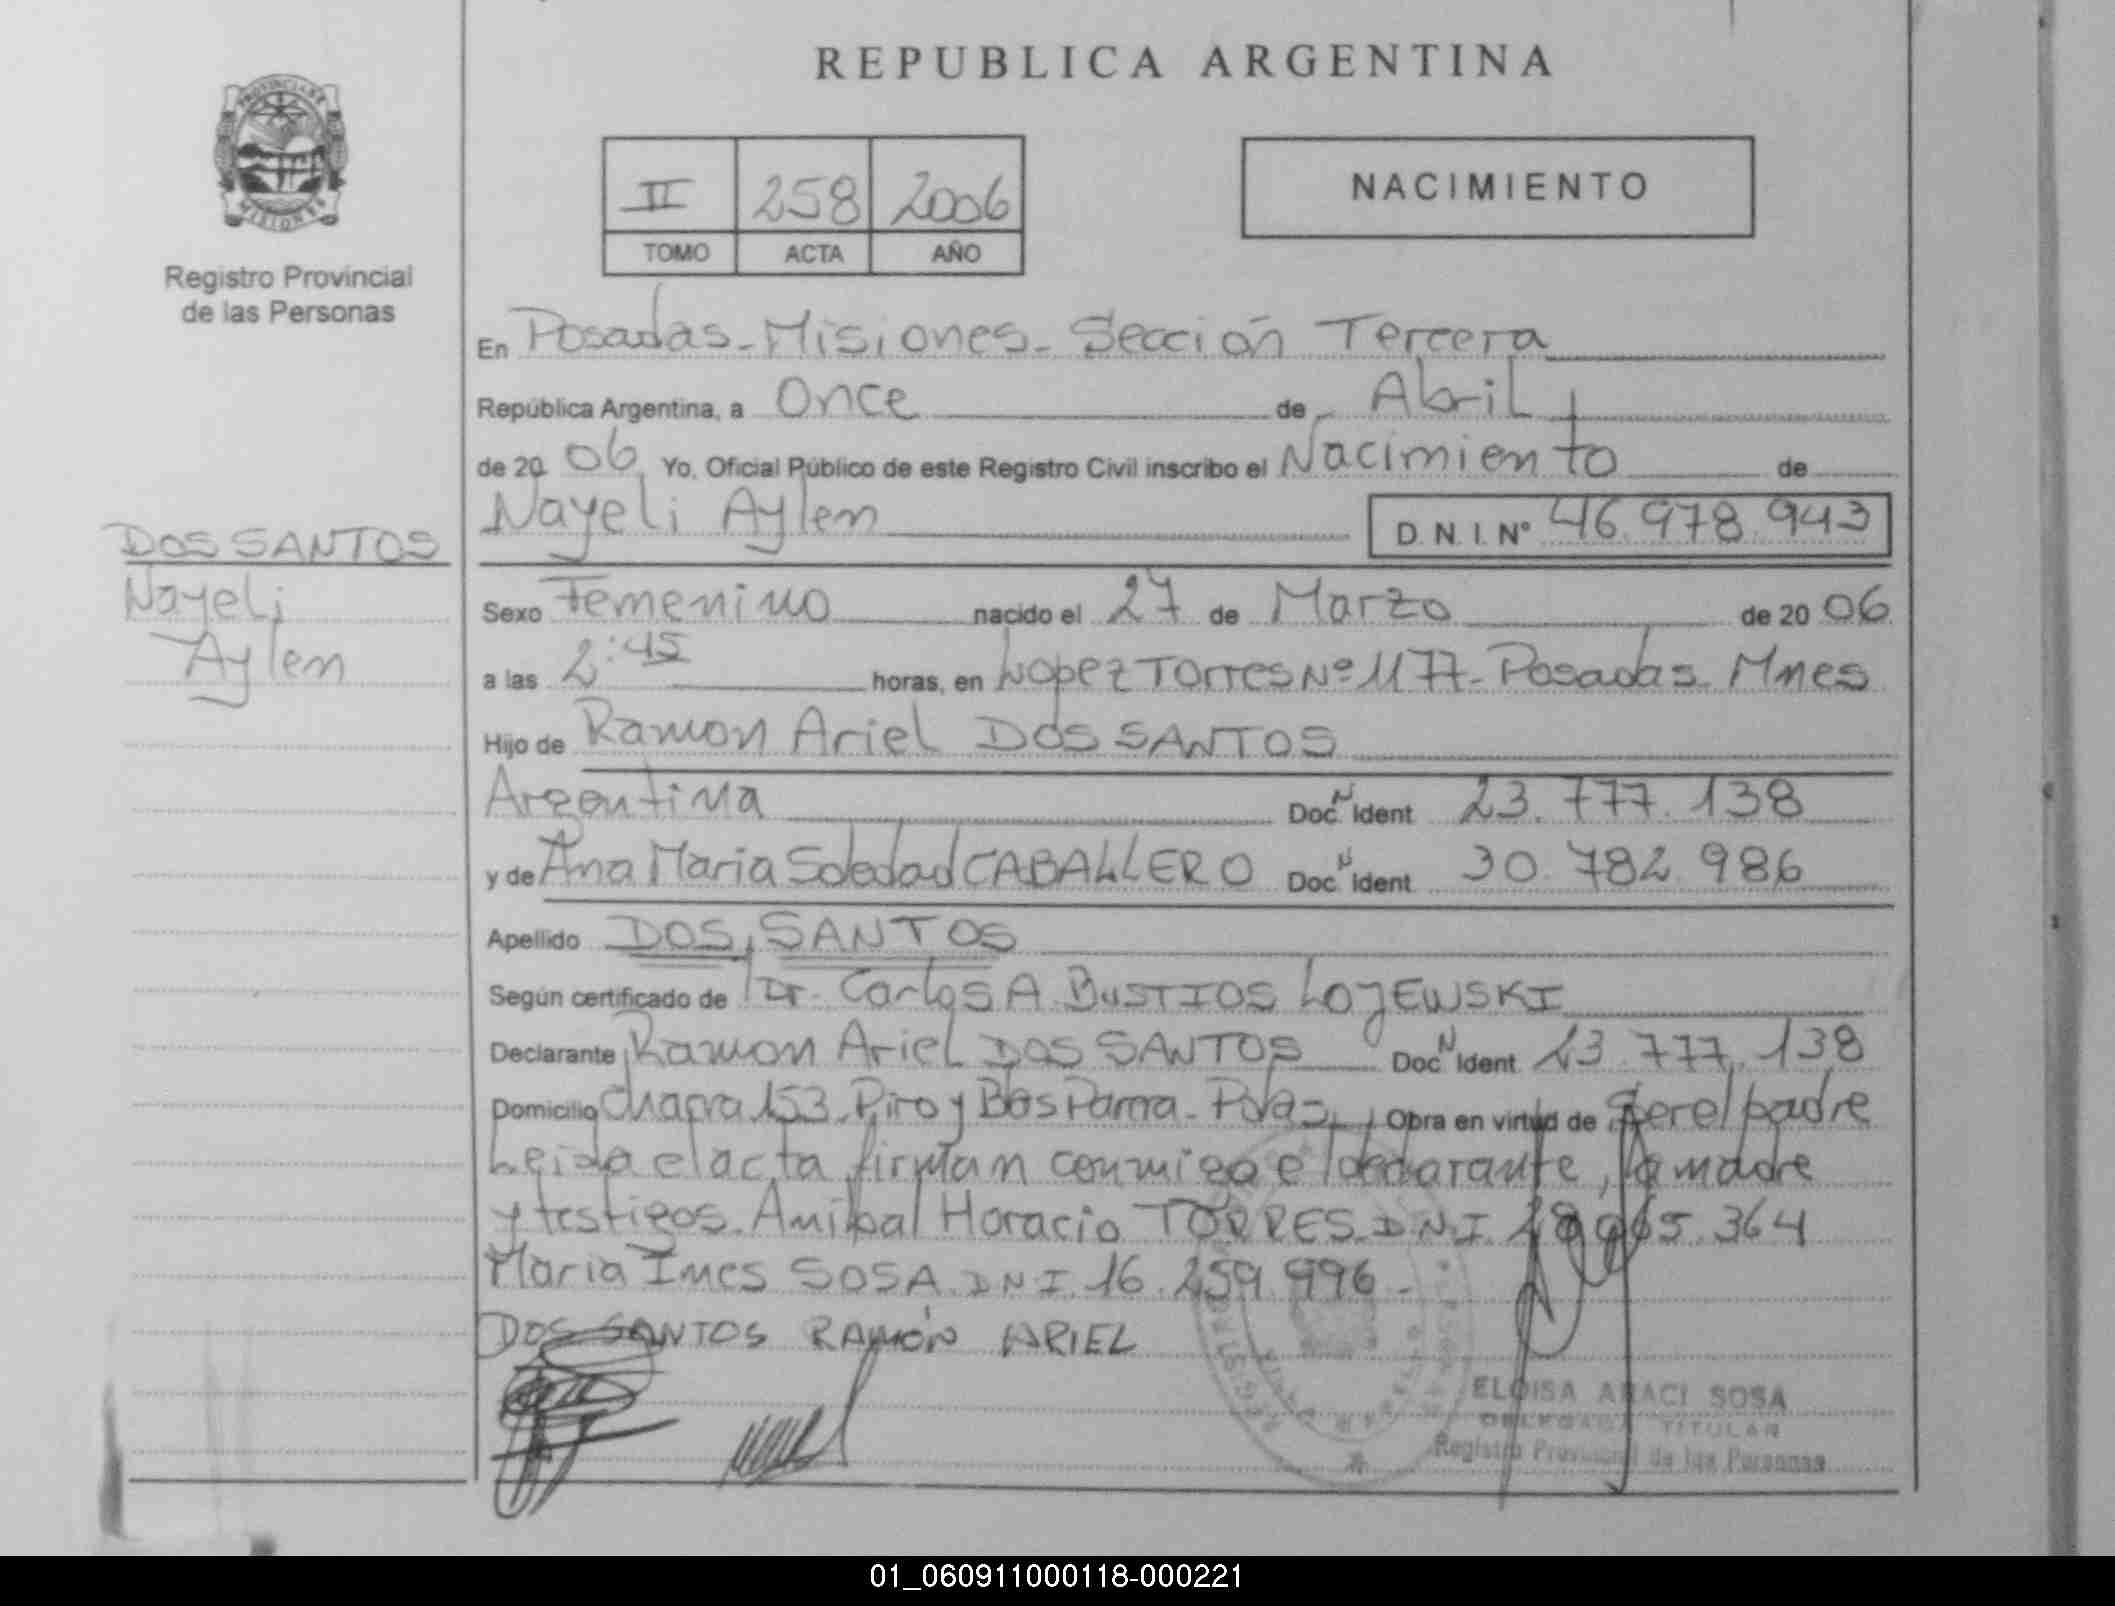 REPUBLICA ARGENTINA
PROVINCIA DE
MISIONES
Registro Provincial
de las Personas
II 258 2006
TOMO ACTA AÑO
NACIMIENTO
En Posadas - Misiones - Sección Tercera
República Argentina, a Once de Abril
de 20 06 Yo, Oficial Público de este Registro Civil inscribo el Nacimiento de
Nayeli Aylen D.N.I. Nº 46.978.943
DOS SANTOS
Nayeli
Aylen
Sexo Femenino nacido el 27 de Marzo de 20 06
a las 2:45 horas, en Lopez Torres Nº 1177 - Posadas - Mnes
Hijo de Ramon Ariel DOS SANTOS
Argentina Doc. N Ident 23.777.138
y de Ana Maria Soledad CABALLERO Doc. N Ident 30.782.986
Apellido DOS SANTOS
Según certificado de Dr. Carlos A. BUSTIOS LOJEWSKI
Declarante Ramon Ariel DOS SANTOS Doc N Ident 23.777.138
Domicilio Chacra 153 - Piro y Obra en virtud de Ser el padre
Leida el acta firman conmigo el declarante, la madre
y testigos. Anibal Horacio TORRES D N I 364
Maria Ines SOSA D N I 16.259.996 -
DOS SANTOS RAMÓN ARIEL
ELOISA ARACI SOSA
DELEGADA TITULAR
Registro Provincial de las Personas
01_060911000118-000221